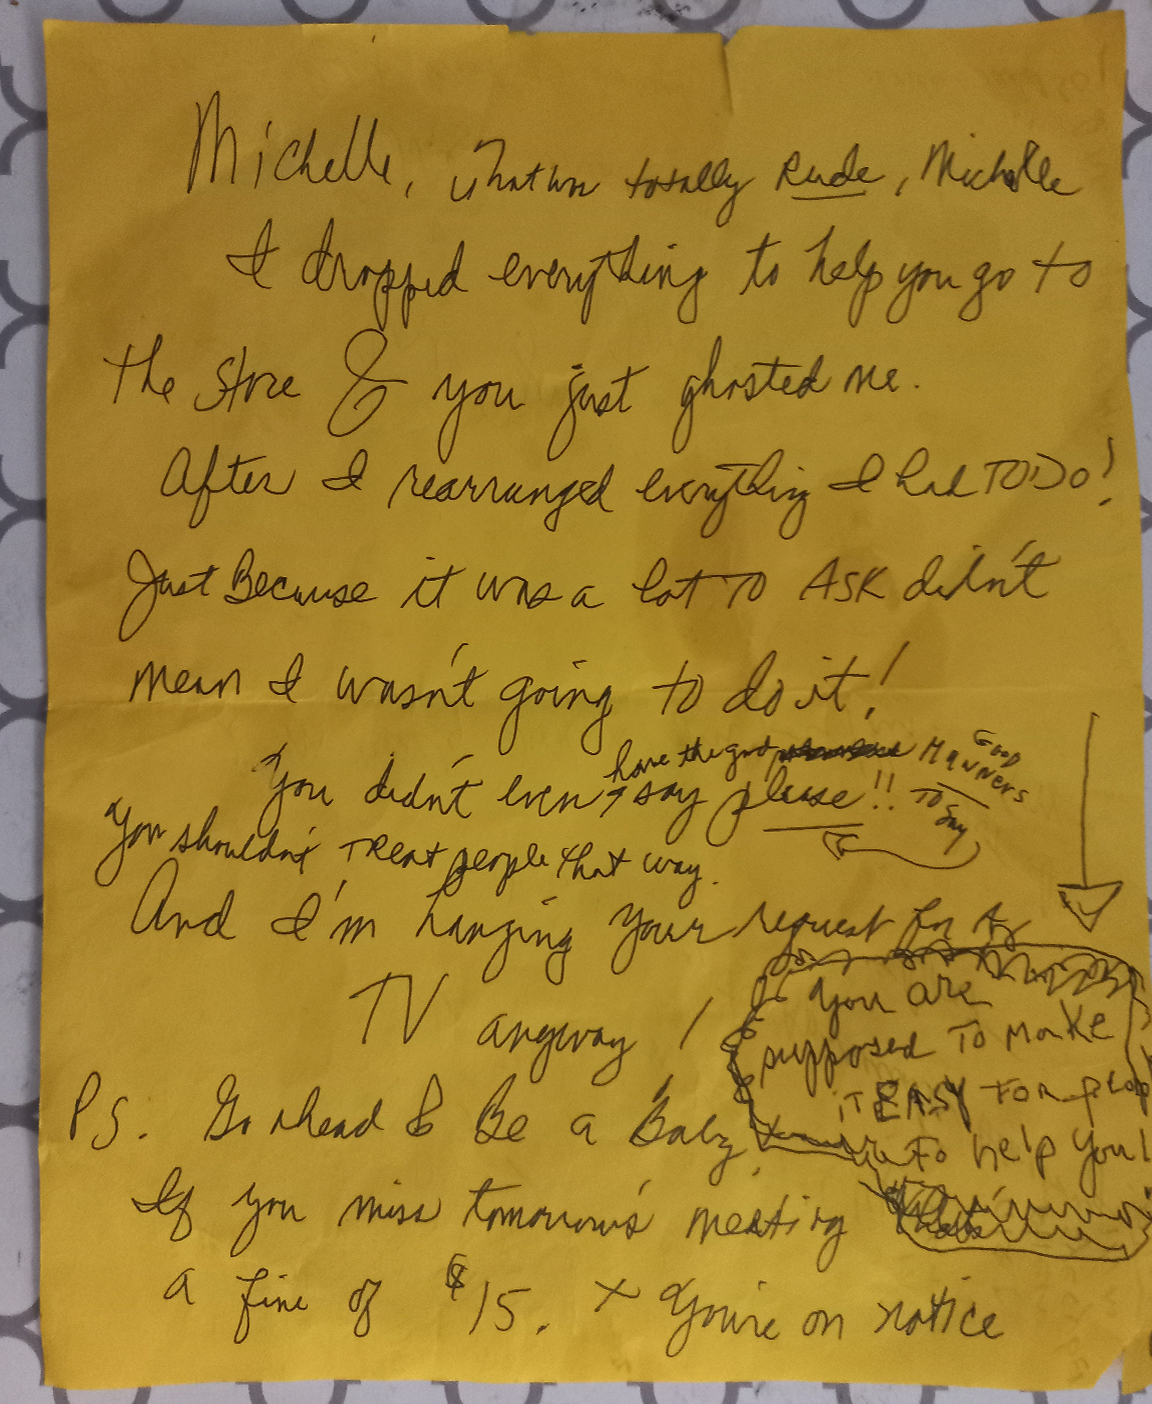 Michelle, That was totally Rude, Michelle
I dropped everything to help you go to
the store & you just ghosted me.
After I rearranged everything I had TO DO!
Just Because it was a lot TO ASK didn't
mean I wasn't going to do it!
have the good MANNERS GOOD
You didn't even say please!! TO Say
You shouldn't TReat people that way.
And I'm hanging your request for
TV anyway!
You are
supposed TO make
iT EASY FOR peopl
To help you!
PS. Go ahead & Be a Baby.
If you miss tomorrow's meeting thats
a fine of $15. + You're on notice